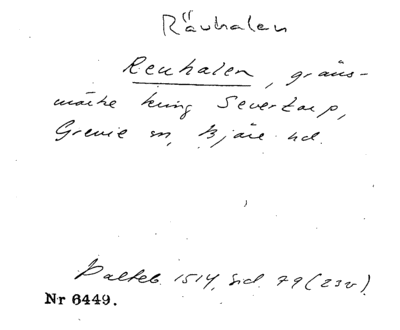 Rävhalen
Revhalen, gräns-
märke kring Severtorp,
Grevie sn, Bjäre hd.
Dalteb. 1514, sid. 79 (23v).
Nr 6449.